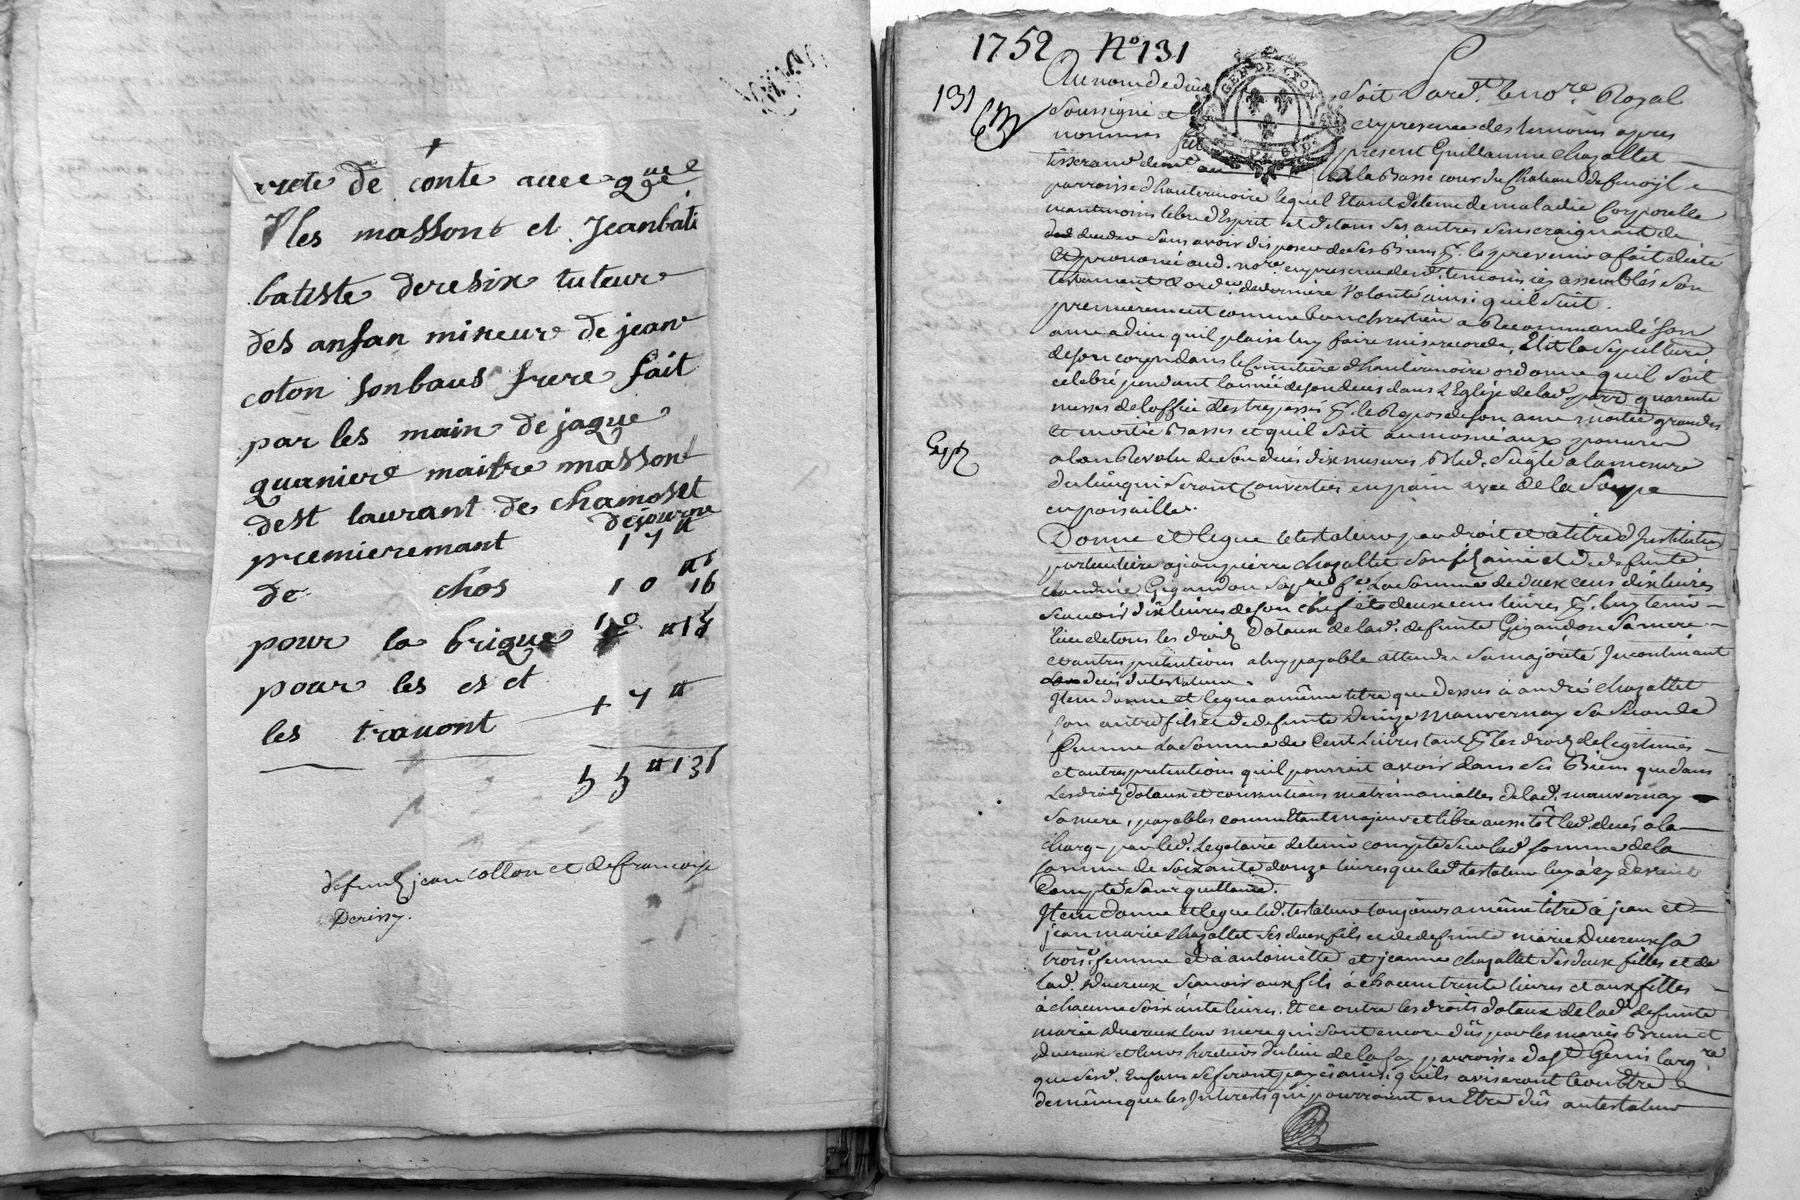 de conte avec
les massont et Jeanbati
batiste deresix tuteur
des anfan mineur de jean
coton sonbaus frere fait
par les main de jaque
quaniere maitre massont
dest laurant de chamoset
de journe
premieremant 17 ₶
de chos 10 ₶ 16
pour la brique
pour les es et
les travont + 7 ₶
55 ₶ 13 s
defunt jean collon et de francoise
Derissy.
1752 No 131
131
Au nom de dieu soit Pard.t le no.re Royal
GEN DE LYON
soussigné et en presence des temoins apres
nommés fut present Guillaume chazallet
tisserand dem.t au a la Basse cour du Chateau de
parroisse d'hauterivoire lequel Etant detenu de maladie Corporelle
neantmoins libre d'Esprit et de tous ses autres sens craignant de
sans avoir disposé de ses Biens p.r le prevenir a fait dicté
Et prononcé aud. no.re en presence desd. temoins icy assemblés son
testament Et ord.ce de derniere Volonté ainsi quil suit.
premierement comme bon chrestien a Recommandé son
ame a dieu quil plaise luy faire misericorde, Elit la sepulture
de son corps dans le Cimitière d'hauterivoire ordonne quil soit
celebré pendant l'année de son deces dans l'Eglise de lad. parr.e quarente
messes de l'office des trepassés p.r le Repos de son ame moitié grandes
Et moitié Basses et quil soit aumosné aux pauvres
a lan Revolu de son decés dix mesures Bled seigle a la mesure
du lieu qui seront Converties en pain avec de la Soupe
Donne et legue le testateur par droit et a titre d'Institution
particuliere a jean pierre chazallet son fils ainé et de defunte
Gigandon sa pre.re f.e La somme de deux cens dix livres
scavoir dix livres de son chef et deux cens livres p.r luy tenir
lieu de tous les droits Dotaux de lad. defunte Gigandon sa mere
et autres pretentions a luy payable attendu sa majorité Incontinant
le deces du testateur.
Item donne et legue a même titre que dessus à andré chazallet
son autre fils et de defunte Denize Mauvernay sa seconde
femme La somme de Cent Livres tant p.r les droits de legitimes
et autres pretentions quil pourroit avoir dans ses Biens que dans
Les droits dotaux et conventions matrimonialles de lad. mauvernay
sa mere, payables comme Etant majeur et libre aussitôt led. decés a la
charge par led. Legataire de tenir compte sur lad. somme de la
somme de soixante douze livres que led. testateur luy a cy devant
Compté sans quittance.
Item donne et legue led. testateur toujours a même titre à jean et
jean marie chazallet ses deux fils et de defunte marie Duereux sa
trois.e femme et à antoinette et jeanne chazallet ses deux filles et de
lad. Duereux scavoir aux fils à chacun trente livres et aux filles
à chacune soixante livres. Et ce outre les droits dotaux de lad. defunte
marie Duereux leur mere qui sont encore dûs par les mariés Brun et
Duereux et leurs heritiers du lieu de la fay parroisse de S.t Genis largr.e
que sesd. Enfans se feront payer ainsi quils aviseront
de même que les Interests qui pourroient en Etre dûs au testateur